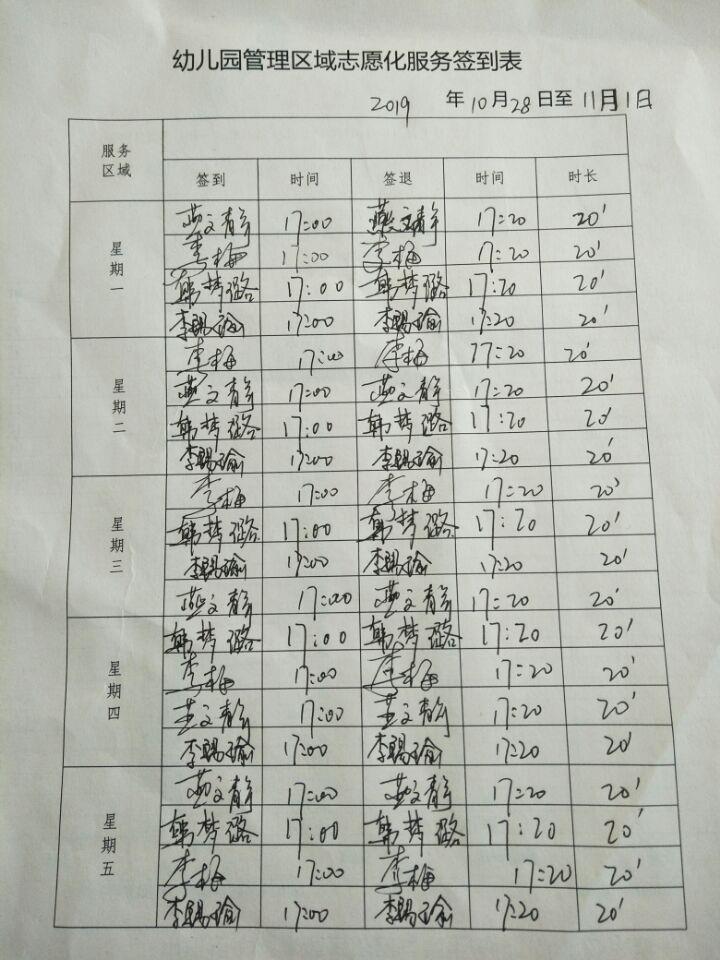 幼儿园管理区域志愿化服务签到表
2019 年10月28日至11月1日
服务区域
签到 时间 签退 时间 时长
星期一
燕文静 17:00 燕文静 17:20 20'
李梅 17:00 李梅 17:20 20'
韩梦璐 17:00 韩梦璐 17:20 20'
李赐瑜 17:00 李赐瑜 17:20 20'
星期二
李梅 17:00 李梅 17:20 20'
燕文静 17:00 燕文静 17:20 20'
韩梦璐 17:00 韩梦璐 17:20 20'
李赐瑜 17:00 李赐瑜 17:20 20'
星期三
李梅 17:00 李梅 17:20 20'
韩梦璐 17:00 韩梦璐 17:20 20'
李赐瑜 17:00 李赐瑜 17:20 20'
燕文静 17:00 燕文静 17:20 20'
星期四
韩梦璐 17:00 韩梦璐 17:20 20'
李梅 17:00 李梅 17:20 20'
燕文静 17:00 燕文静 17:20 20'
李赐瑜 17:00 李赐瑜 17:20 20'
星期五
燕文静 17:00 燕文静 17:20 20'
韩梦璐 17:00 韩梦璐 17:20 20'
李梅 17:00 李梅 17:20 20'
李赐瑜 17:00 李赐瑜 17:20 20'